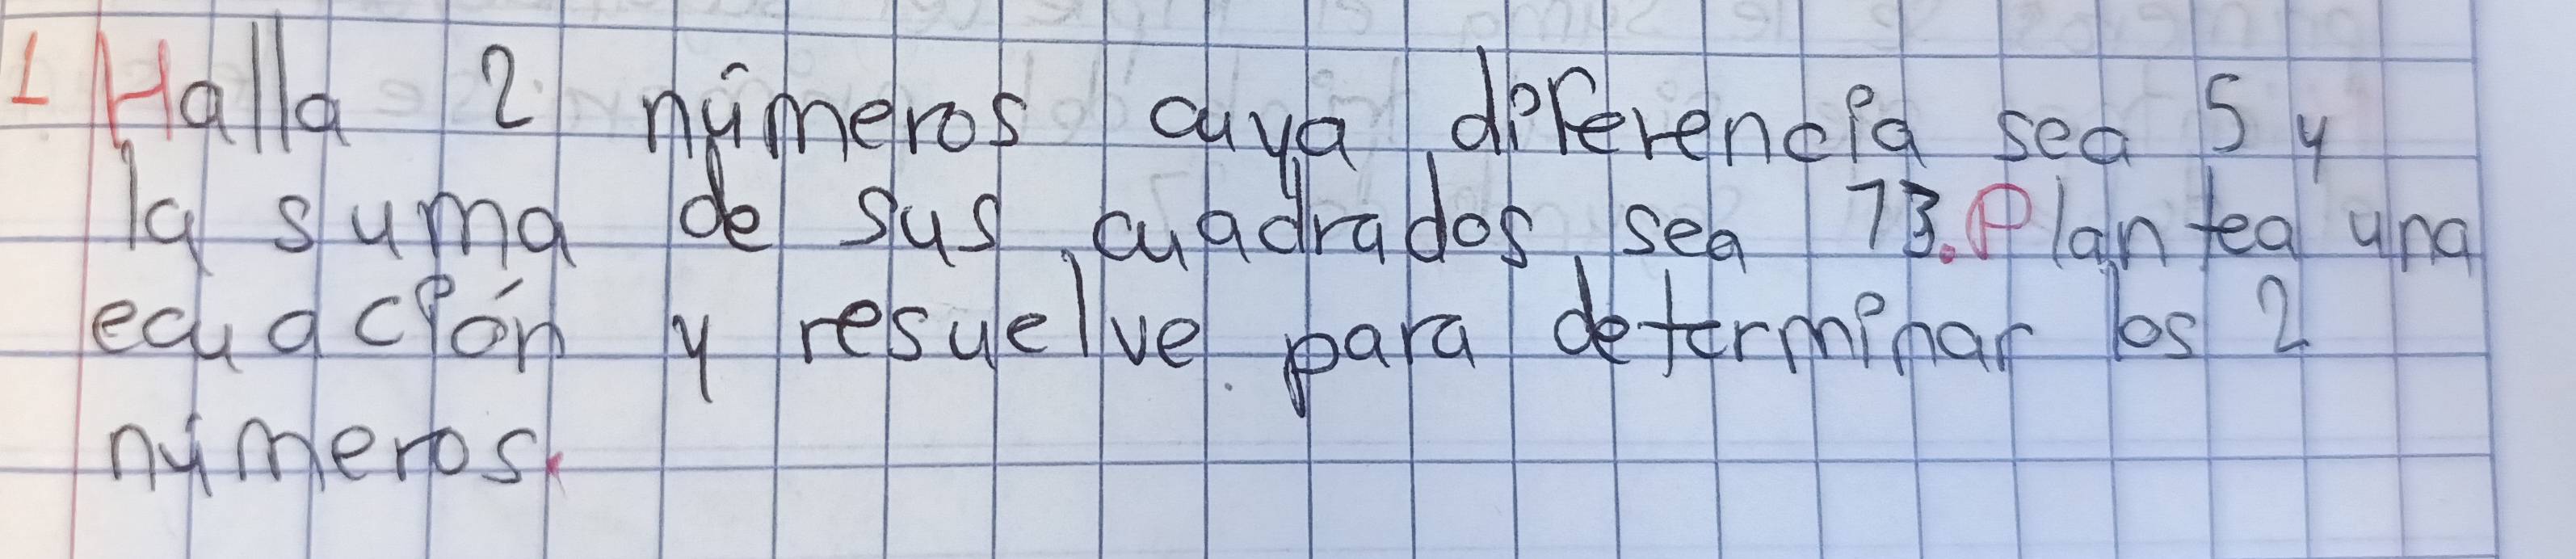 1 Halla 2 números cuya diferencia sea 5 y
la suma de sus cuadrados sea 73. Plantea una
ecuación y resuelve para determinar los 2
números.